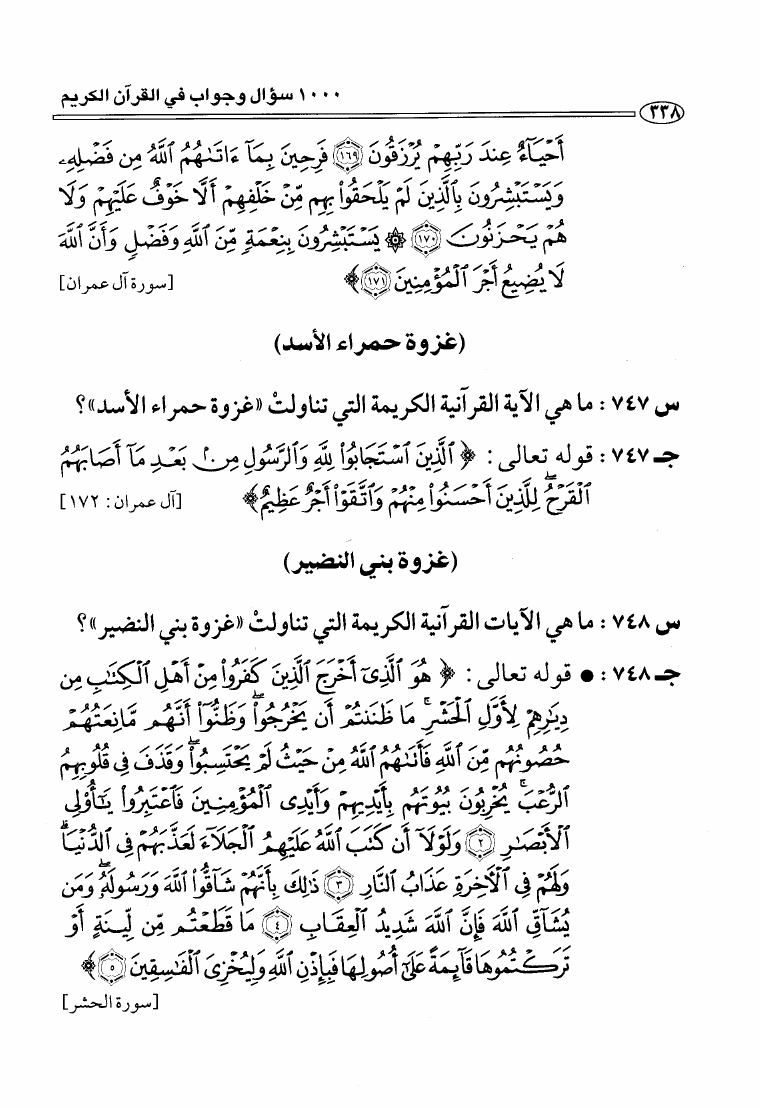 ١٠٠٠ سؤال وجواب في القرآن الكريم
٣٣٨
أَحْيَآءٌ عِندَ رَبِّهِمْ يُرْزَقُونَ ١٦٩ فَرِحِينَ بِمَآ ءَاتَىٰهُمُ ٱللَّهُ مِن فَضْلِهِۦ
وَيَسْتَبْشِرُونَ بِٱلَّذِينَ لَمْ يَلْحَقُوا۟ بِهِم مِّنْ خَلْفِهِمْ أَلَّا خَوْفٌ عَلَيْهِمْ وَلَا
هُمْ يَحْزَنُونَ ١٧٠ ۞ يَسْتَبْشِرُونَ بِنِعْمَةٍ مِّنَ ٱللَّهِ وَفَضْلٍ وَأَنَّ ٱللَّهَ
لَا يُضِيعُ أَجْرَ ٱلْمُؤْمِنِينَ ١٧١ ﴾ [سورة آل عمران]
(غزوة حمراء الأسد)
س ٧٤٧ : ما هي الآية القرآنية الكريمة التي تناولتْ «غزوة حمراء الأسد»؟
جـ ٧٤٧ : قوله تعالى : ﴿ ٱلَّذِينَ ٱسْتَجَابُوا۟ لِلَّهِ وَٱلرَّسُولِ مِنۢ بَعْدِ مَآ أَصَابَهُمُ
ٱلْقَرْحُ ۚ لِلَّذِينَ أَحْسَنُوا۟ مِنْهُمْ وَٱتَّقَوْا۟ أَجْرٌ عَظِيمٌ ﴾ [آل عمران : ١٧٢]
(غزوة بني النضير)
س ٧٤٨ : ما هي الآيات القرآنية الكريمة التي تناولتْ «غزوة بني النضير»؟
جـ ٧٤٨ : ● قوله تعالى : ﴿ هُوَ ٱلَّذِىٓ أَخْرَجَ ٱلَّذِينَ كَفَرُوا۟ مِنْ أَهْلِ ٱلْكِتَٰبِ مِن
دِيَٰرِهِمْ لِأَوَّلِ ٱلْحَشْرِ ۚ مَا ظَنَنتُمْ أَن يَخْرُجُوا۟ ۖ وَظَنُّوٓا۟ أَنَّهُم مَّانِعَتُهُمْ
حُصُونُهُم مِّنَ ٱللَّهِ فَأَتَىٰهُمُ ٱللَّهُ مِنْ حَيْثُ لَمْ يَحْتَسِبُوا۟ ۖ وَقَذَفَ فِى قُلُوبِهِمُ
ٱلرُّعْبَ ۚ يُخْرِبُونَ بُيُوتَهُم بِأَيْدِيهِمْ وَأَيْدِى ٱلْمُؤْمِنِينَ فَٱعْتَبِرُوا۟ يَٰٓأُو۟لِى
ٱلْأَبْصَٰرِ ٢ وَلَوْلَآ أَن كَتَبَ ٱللَّهُ عَلَيْهِمُ ٱلْجَلَآءَ لَعَذَّبَهُمْ فِى ٱلدُّنْيَا ۖ
وَلَهُمْ فِى ٱلْأَخِرَةِ عَذَابُ ٱلنَّارِ ٣ ذَٰلِكَ بِأَنَّهُمْ شَآقُّوا۟ ٱللَّهَ وَرَسُولَهُۥ ۖ وَمَن
يُشَآقِّ ٱللَّهَ فَإِنَّ ٱللَّهَ شَدِيدُ ٱلْعِقَابِ ٤ مَا قَطَعْتُم مِّن لِّينَةٍ أَوْ
تَرَكْتُمُوهَا قَآئِمَةً عَلَىٰٓ أُصُولِهَا فَبِإِذْنِ ٱللَّهِ وَلِيُخْزِىَ ٱلْفَٰسِقِينَ ٥ ﴾
[سورة الحشر]